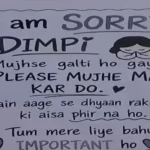 I am SORRY
DIMPI
Mujhse galti ho gayi
PLEASE MUJHE MAAF
KAR DO.
Main aage se dhyaan rakhunga
ki aisa phir na ho.
Tum mere liye bahut
IMPORTANT ho